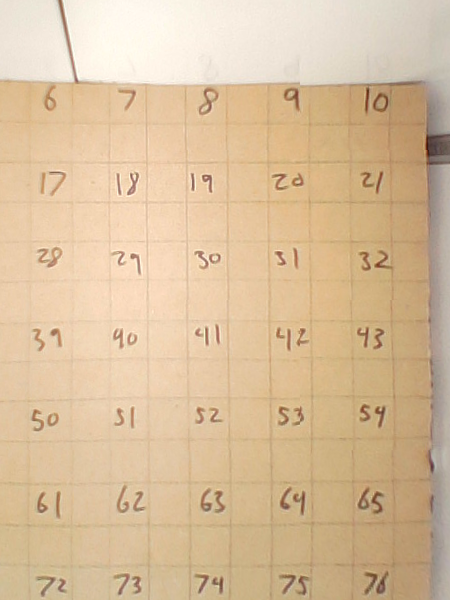 6 7 8 9 10
17 18 19 20 21
28 29 30 31 32
39 40 41 42 43
50 51 52 53 54
61 62 63 64 65
72 73 74 75 76